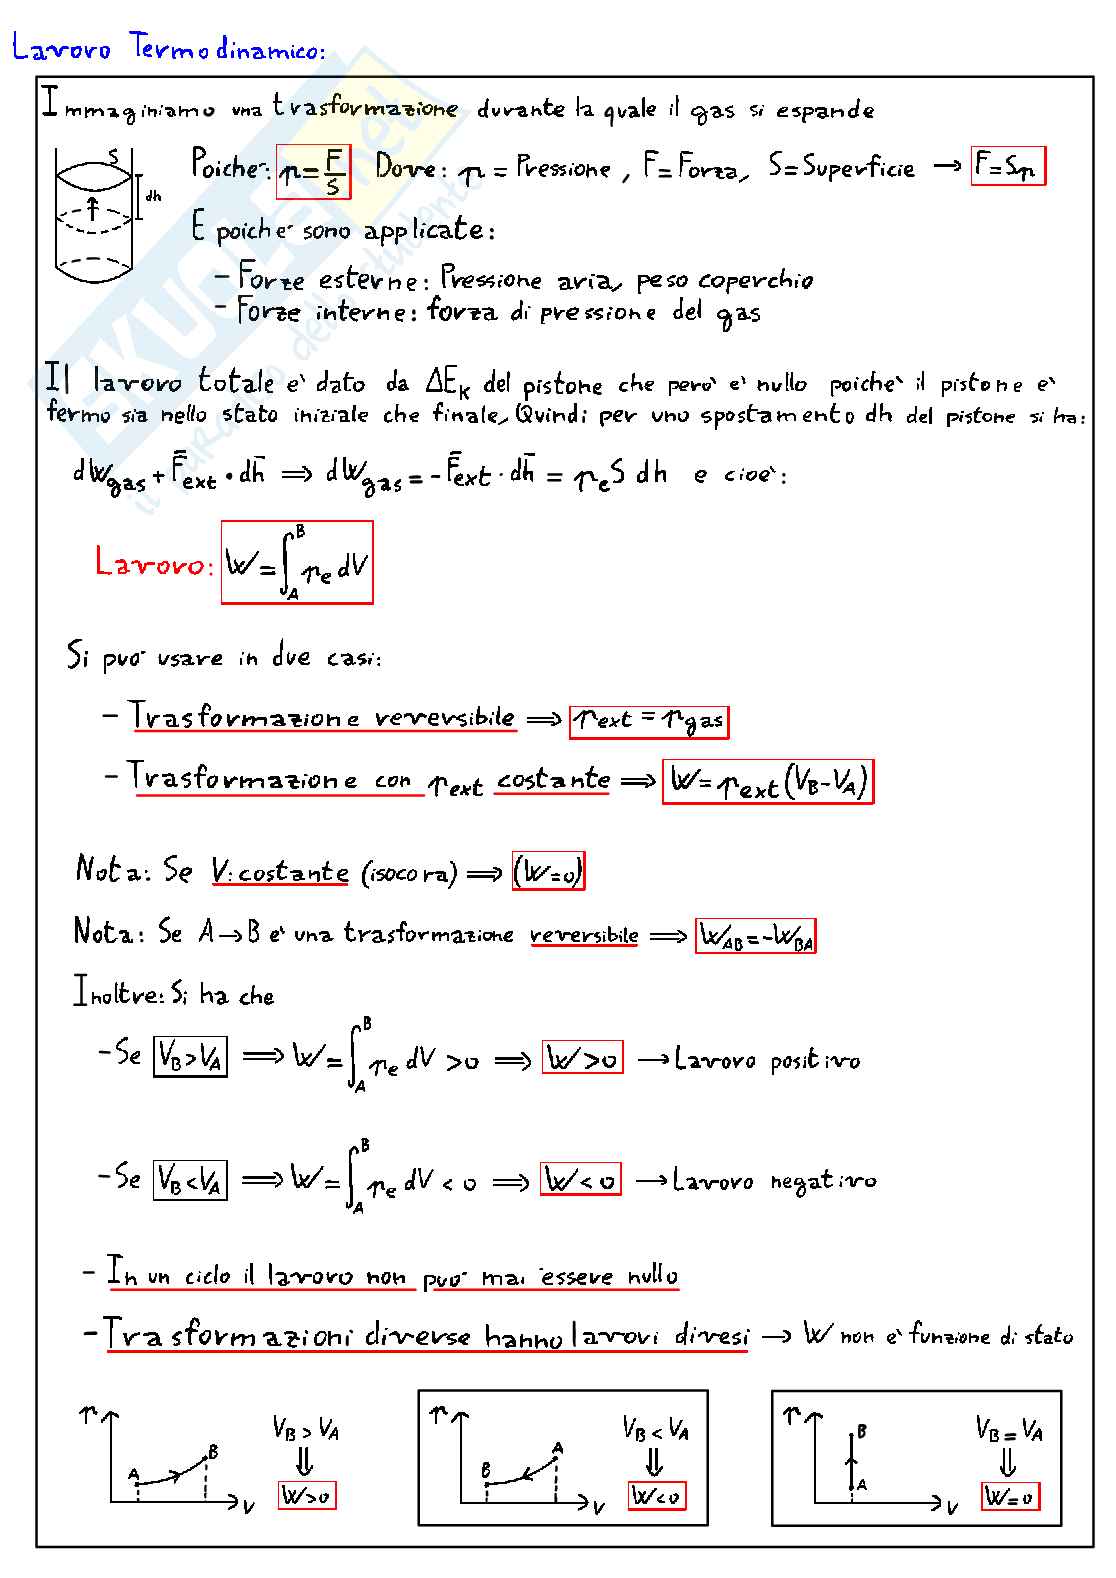 Lavoro Termodinamico:
Immaginiamo una trasformazione durante la quale il gas si espande
S
dh
Poiche': p=F/S Dove: p = Pressione, F=Forza, S=Superficie → F=Sp
E poiche' sono applicate:
- Forze esterne: Pressione aria, peso coperchio
- Forze interne: forza di pressione del gas
Il lavoro totale e' dato da ΔEk del pistone che pero' e' nullo poiche' il pistone e'
fermo sia nello stato iniziale che finale, Quindi per uno spostamento dh del pistone si ha:
dWgas + F̄ext · dh̄ ⟹ dWgas = -F̄ext · dh̄ = peS dh e cioe':
Lavoro: W=∫_A^B pe dV
Si puo' usare in due casi:
- Trasformazione reversibile ⟹ pext = pgas
- Trasformazione con pext costante ⟹ W=pext(VB-VA)
Nota: Se V: costante (isocora) ⟹ (W=0)
Nota: Se A→B e' una trasformazione reversibile ⟹ WAB=-WBA
Inoltre: Si ha che
- Se VB>VA ⟹ W=∫_A^B pe dV >0 ⟹ W>0 → Lavoro positivo
- Se VB<VA ⟹ W=∫_A^B pe dV <0 ⟹ W<0 → Lavoro negativo
- In un ciclo il lavoro non puo' mai essere nullo
- Trasformazioni diverse hanno lavori divesi → W non e' funzione di stato
p A B V VB > VA ⇓ W>0
p B A V VB < VA ⇓ W<0
p B A V VB = VA ⇓ W=0
SKUOLA.net
il paradiso dello studente